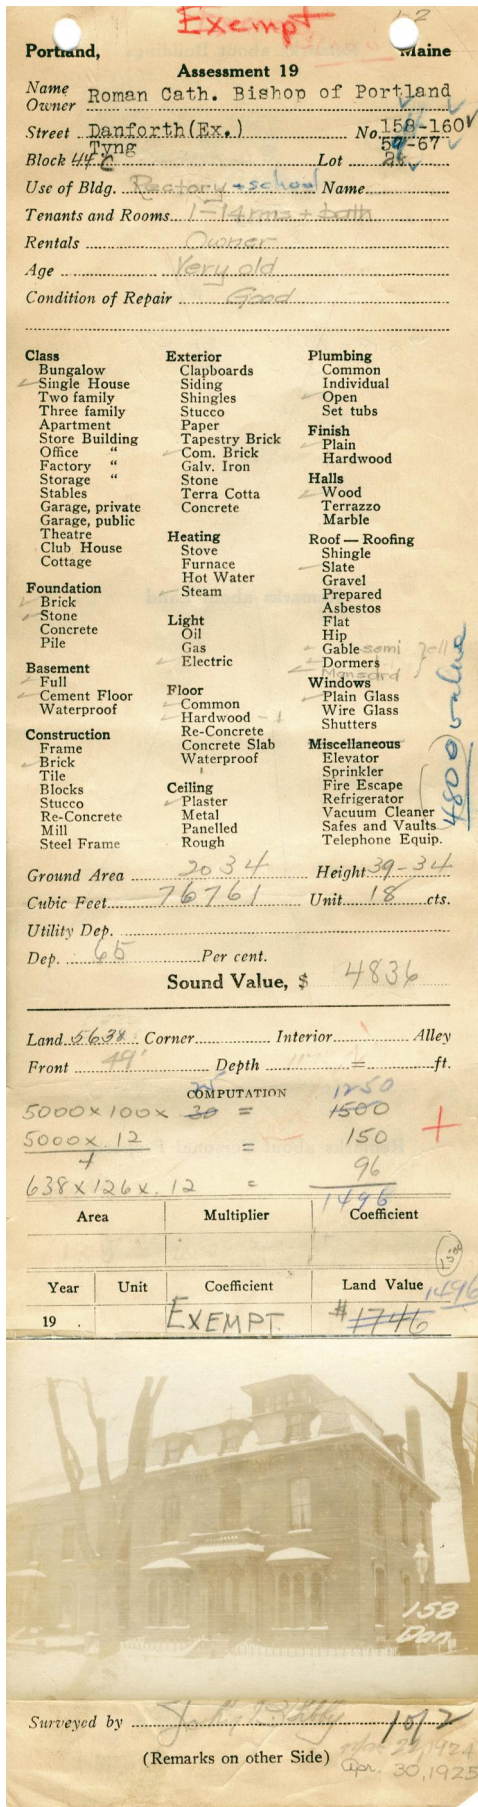 Exempt
Portland, Maine
Assessment 19
Name
Owner Roman Cath. Bishop of Portland
Street Danforth (Ex.) No. 158-160
Tyng 59-67
Block 44 C Lot
Use of Bldg. Rectory + school Name
Tenants and Rooms 1-14 rms + bath
Rentals Owner
Age Very old
Condition of Repair Good
Class
Bungalow
Single House
Two family
Three family
Apartment
Store Building
Office "
Factory "
Storage "
Stables
Garage, private
Garage, public
Theatre
Club House
Cottage
Foundation
Brick
Stone
Concrete
Pile
Basement
Full
Cement Floor
Waterproof
Construction
Frame
Brick
Tile
Blocks
Stucco
Re-Concrete
Mill
Steel Frame
Exterior
Clapboards
Siding
Shingles
Stucco
Paper
Tapestry Brick
Com. Brick
Galv. Iron
Stone
Terra Cotta
Concrete
Heating
Stove
Furnace
Hot Water
Steam
Light
Oil
Gas
Electric
Floor
Common
Hardwood - 1
Re-Concrete
Concrete Slab
Waterproof
Ceiling
Plaster
Metal
Panelled
Rough
Plumbing
Common
Individual
Open
Set tubs
Finish
Plain
Hardwood
Halls
Wood
Terrazzo
Marble
Roof — Roofing
Shingle
Slate
Gravel
Prepared
Asbestos
Flat
Hip
Gable semi } ell
Dormers
Mansard
Windows
Plain Glass
Wire Glass
Shutters
Miscellaneous
Elevator
Sprinkler
Fire Escape
Refrigerator
Vacuum Cleaner
Safes and Vaults
Telephone Equip.
4800 value
Ground Area 2034 Height 39-34
Cubic Feet 76761 Unit 18 cts.
Utility Dep.
Dep. 65 Per cent.
Sound Value, $ 4836
Land 5638 Corner Interior Alley
Front 49' Depth = ft.
COMPUTATION
25 1250
5000 x 100 x 30 = 1500
5000 x .12 = 150
4
638 x 126 x .12 = 96
1496
Area Multiplier Coefficient
1500
Year Unit Coefficient Land Value 1496
19 . EXEMPT. $ 1746
158
Dan.
Surveyed by
(Remarks on other Side)
Apr. 30, 1925